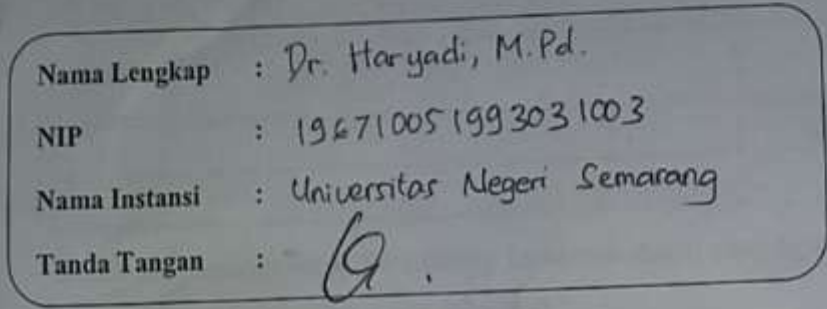 Nama Lengkap : Dr. Haryadi, M.Pd.
NIP : 196710051993031003
Nama Instansi : Universitas Negeri Semarang
Tanda Tangan :